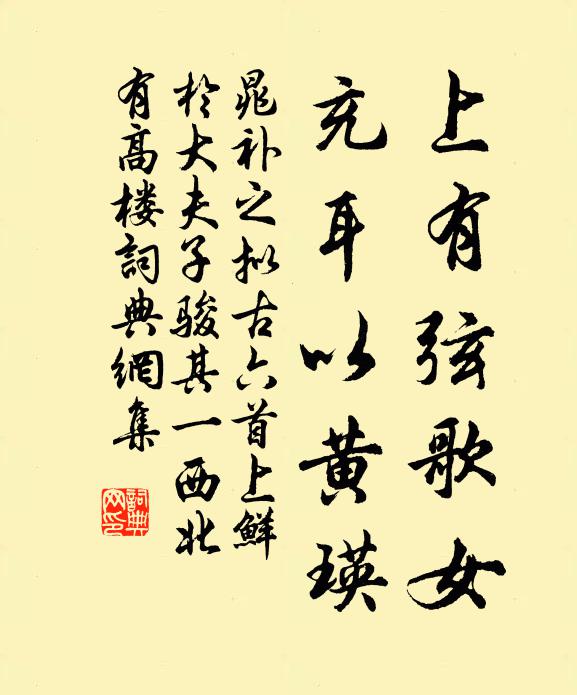 上有弦歌女
充耳以黄瑛
晁补之拟古六首上鲜
于大夫子骏其一西北
有高楼词典网集
词典网印